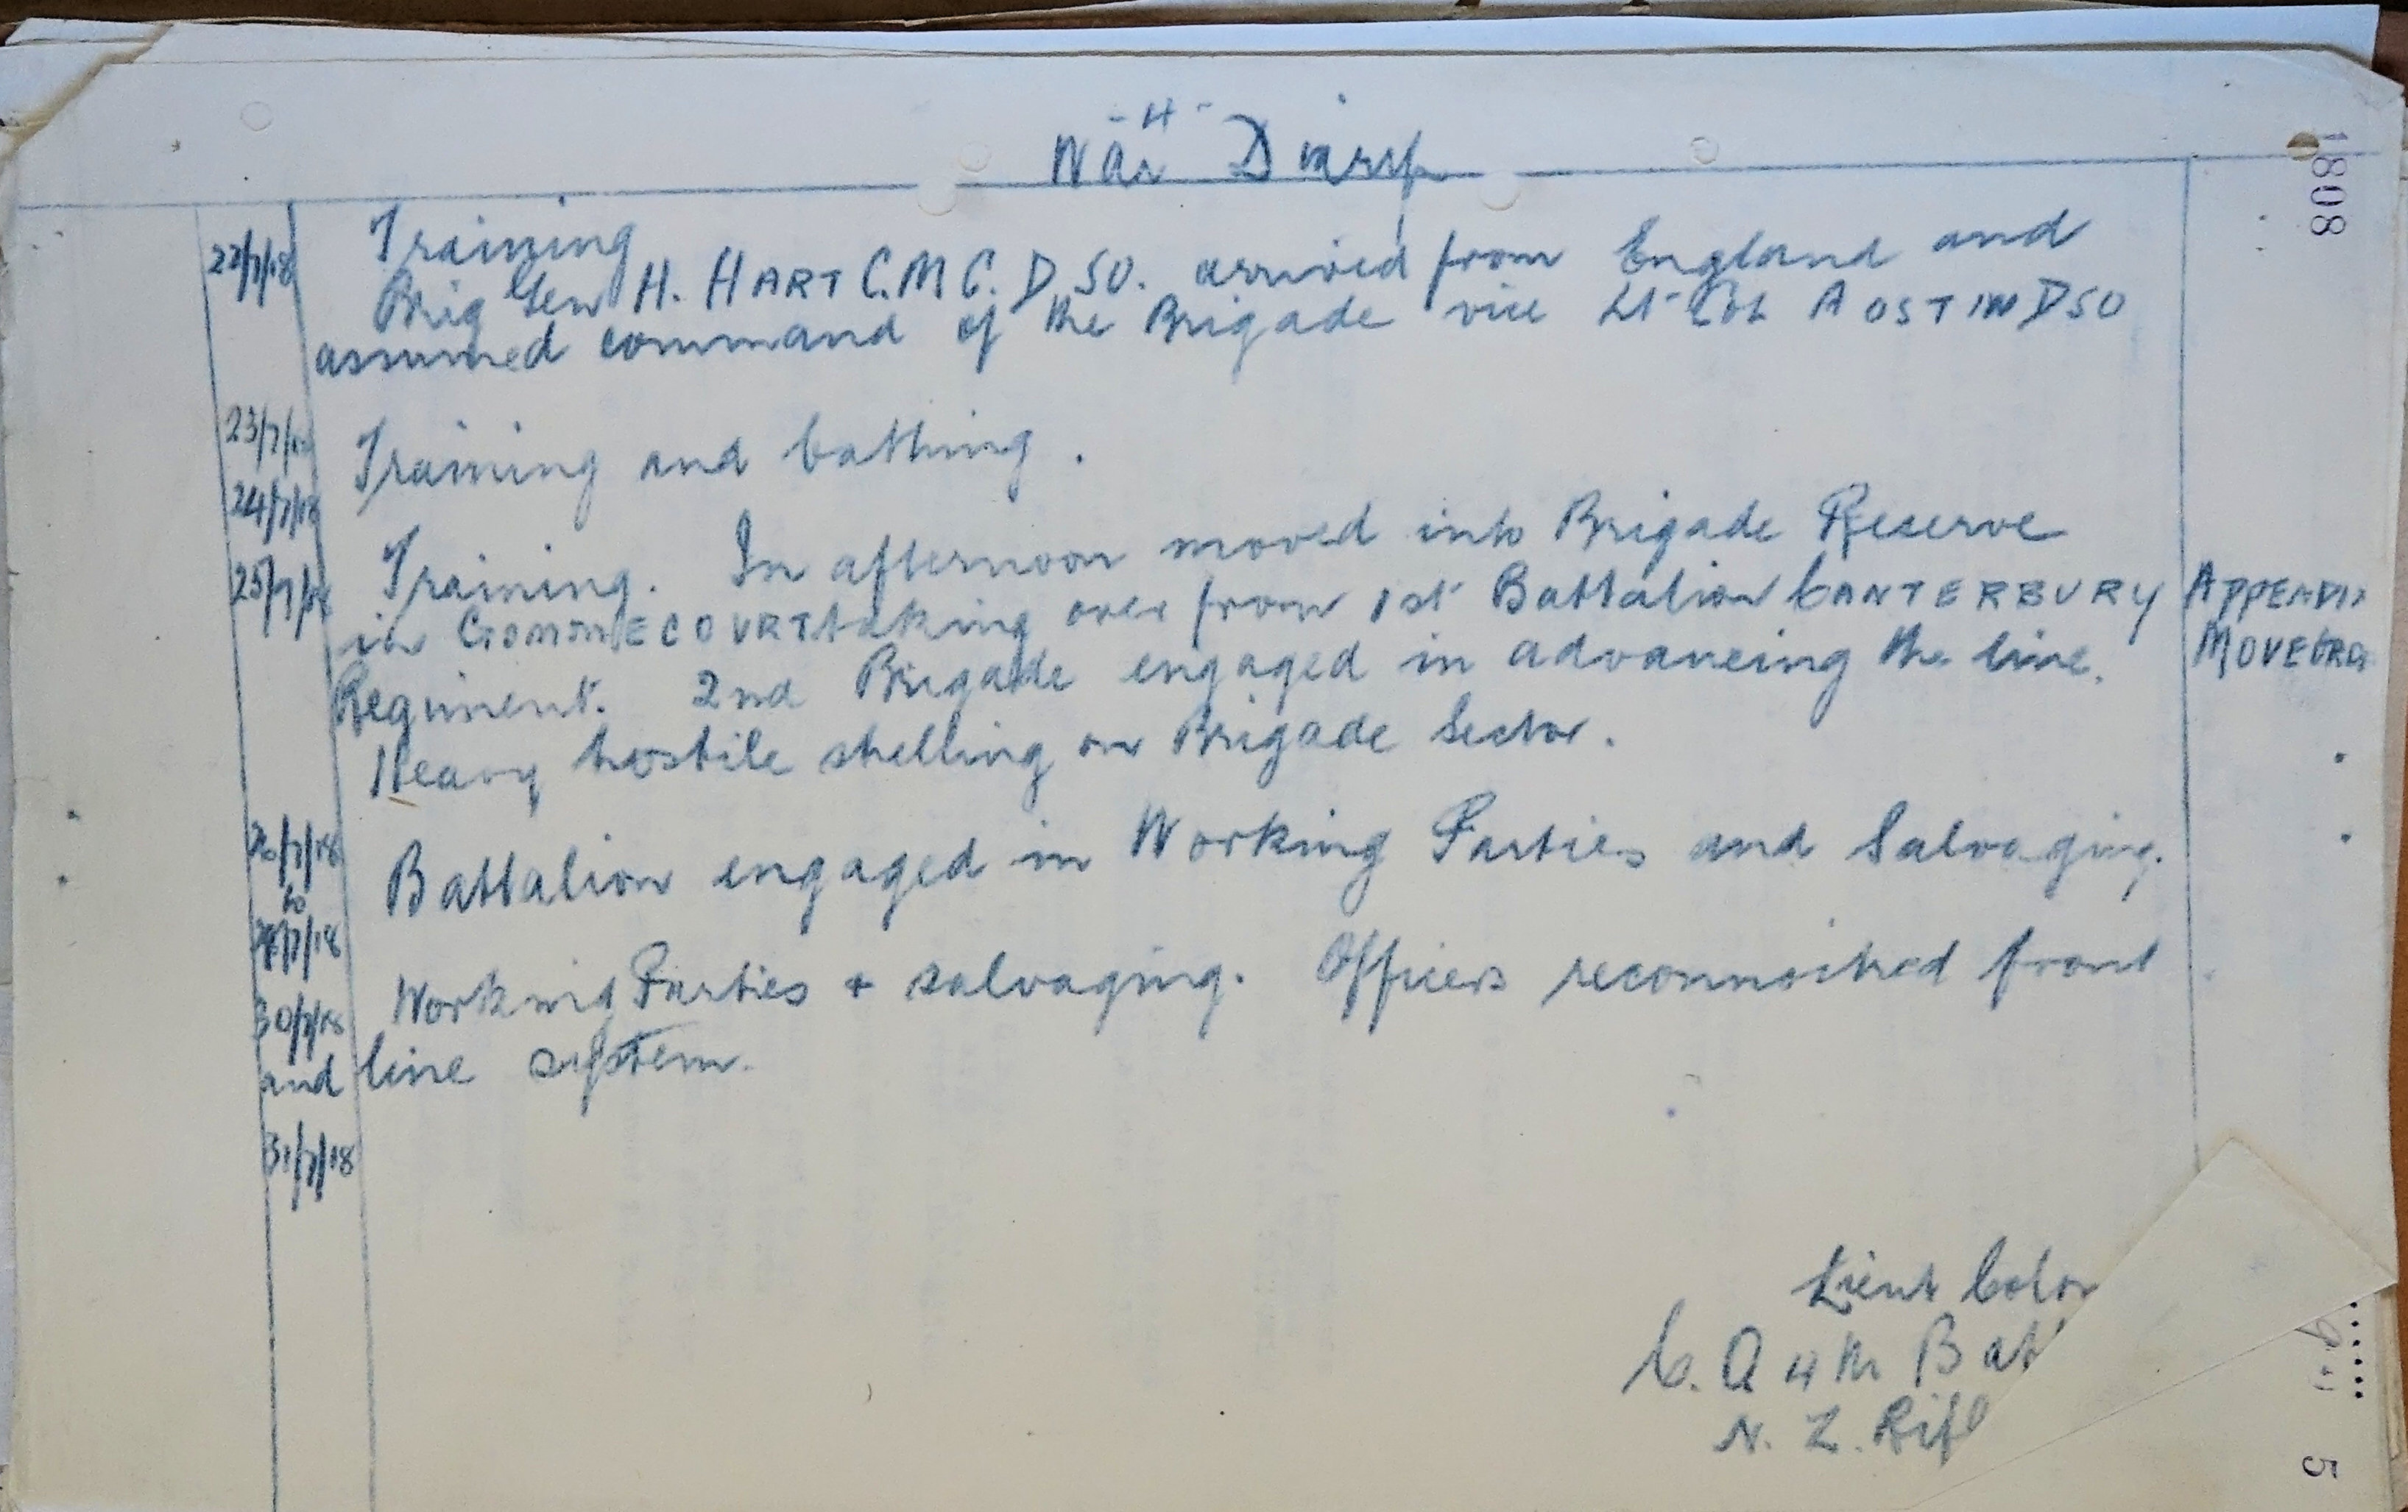 - 4 -
War Diary
1808
22/7/18 Training
Brig Gen H. HART C.M.G. D.S.O. arrived from England and
assumed command of the Brigade vice Lt Col AUSTIN DSO
23/7/18 Training and bathing.
24/7/18
25/7/18 Training. In afternoon moved into Brigade Reserve
in GOMMECOURT taking over from 1st Battalion CANTERBURY
Regiment. 2nd Brigade engaged in advancing the line.
Heavy hostile shelling on Brigade Sector.
APPENDIX
MOVE ORD
26/7/18 Battalion engaged in Working Parties and Salvaging.
to
/7/18
30/7/18 Working Parties + salvaging. Officers reconnoitred front
and line system.
31/7/18
Lieut Colon
C.O 4th Bat
N. Z. Rifl
5